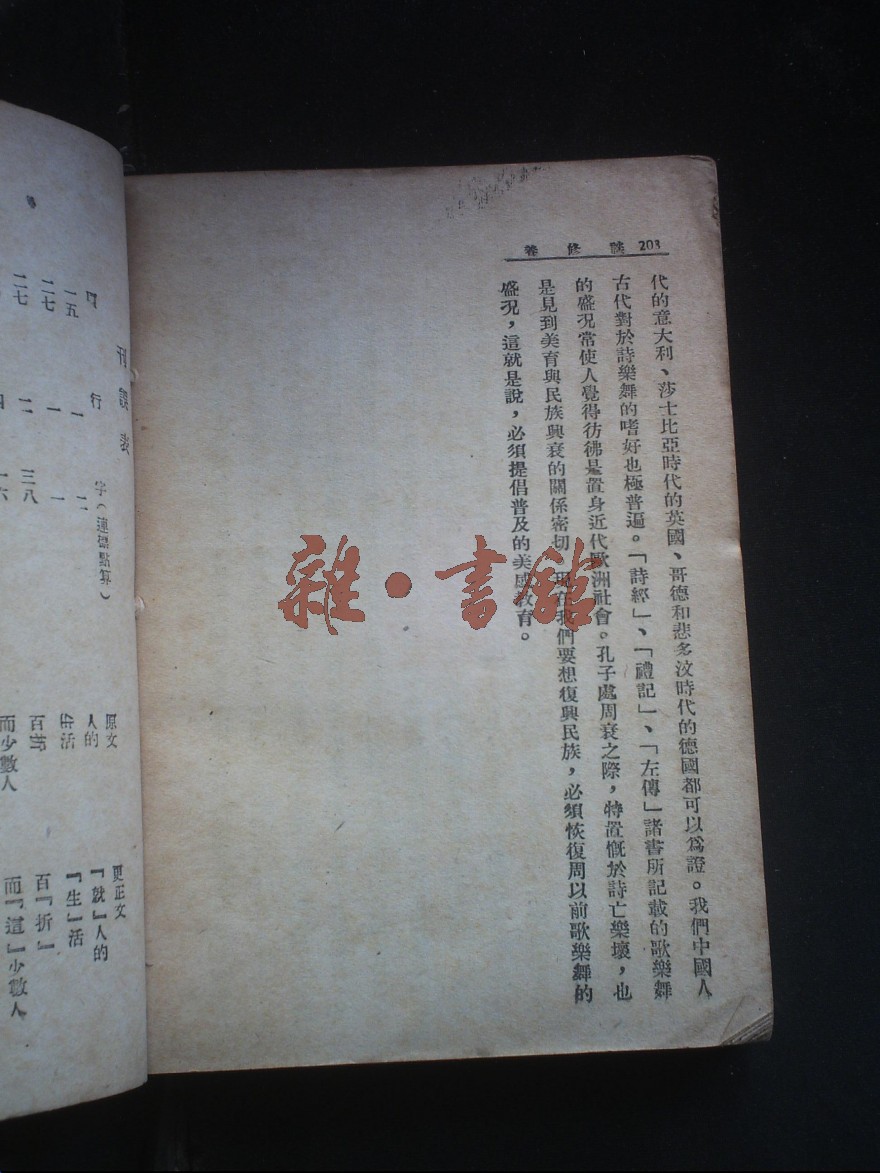 談修養 203
代的意大利、莎士比亞時代的英國、哥德和悲多汶時代的德國都可以爲證。我們中國人
古代對於詩樂舞的嗜好也極普遍。「詩經」、「禮記」、「左傳」諸書所記載的歌樂舞
的盛况常使人覺得彷彿是置身近代歐洲社會。孔子處周衰之際，特置慨於詩亡樂壞，也
是見到美育與民族興衰的關係密切 現在我們要想復興民族，必須恢復周以前歌樂舞的
盛况，這就是說，必須提倡普及的美感教育。
雜·書館
刊誤表
頁 行 字（連標點算） 原文 更正文
一五 一 一二 人的 『就』人的
二七 一 一 活 『生』活
二七 二 三八 百 百『折』
四 一六 而少數人 而『這』少數人